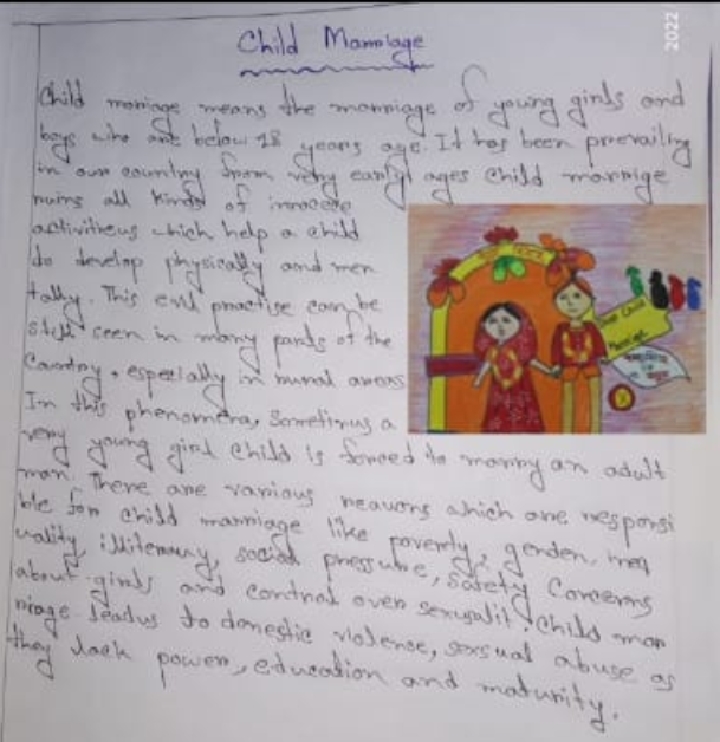 2022
Child Marriage
Child marriage means the marriage of young girls and
boys who are below 18 years age. It has been prevailing
in our country from very early ages Child marriage
ruins all kinds of
which help a child
to develop physically and men
tally. This evil practise can be
still seen in many parts of the
Country, especially in rural areas
In this phenomena, Sometimes a
very young girl child is forced to marry an adult
man. There are various reasons which are responsi
ble for child marriage like poverty, gender, ineq
uality, illiteracy, social pressure, Safety Concerns
about girls and control over sexuality. Child mar
riage leads to domestic violence, sexual abuse as
they lack power, education and maturity.
Stop Child
Marriage